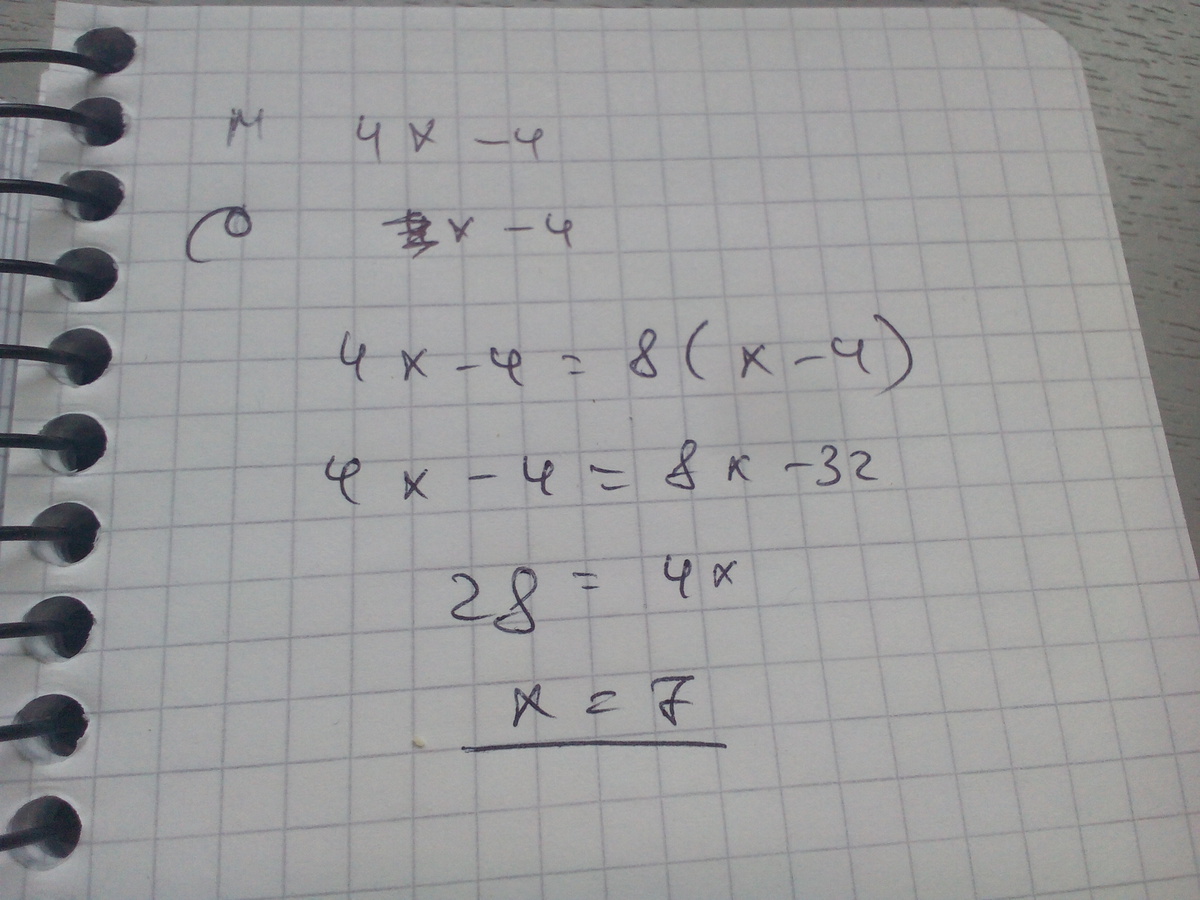 M 4x - 4
x - 4
4x - 4 = 8(x - 4)
4x - 4 = 8x - 32
28 = 4x
x = 7